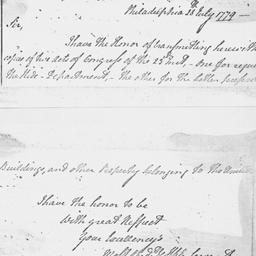 Philadelphia 28th July 1779
Sir,
I have the Honor of transmitting herewith
copies of two acts of Congress of the 25 Inst - One for regu
the Hide - Department - The other for the better
Buildings, and other Property belonging to the United
I have the honor to be
With great Respect
Your Excellency's